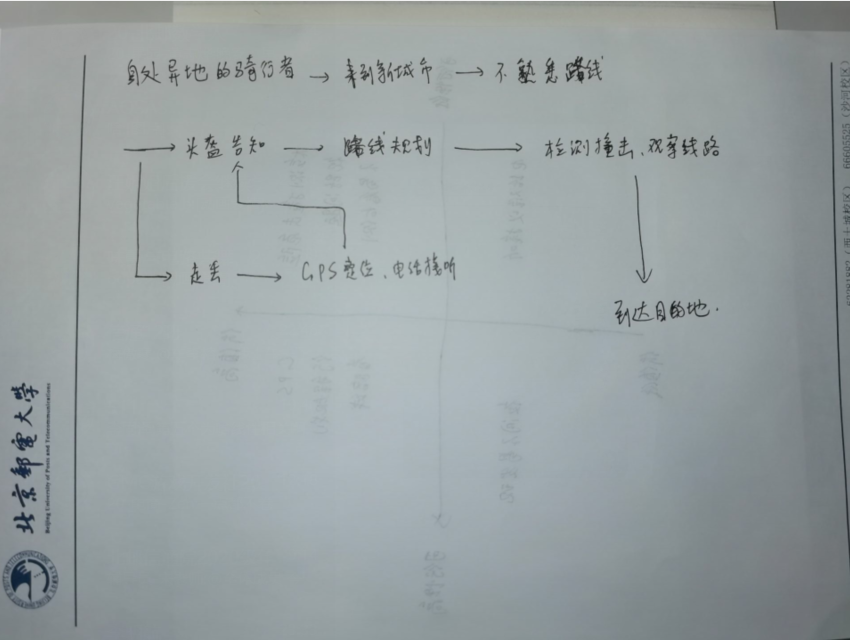 身处异地的骑行者 → 来到新城市 → 不熟悉路线
→ 头盔告知 → 路线规划 → 检测撞击、观察线路
走丢 → GPS定位、电话接听
到达目的地.
北京邮电大学
Beijing University of Posts and Telecommunications